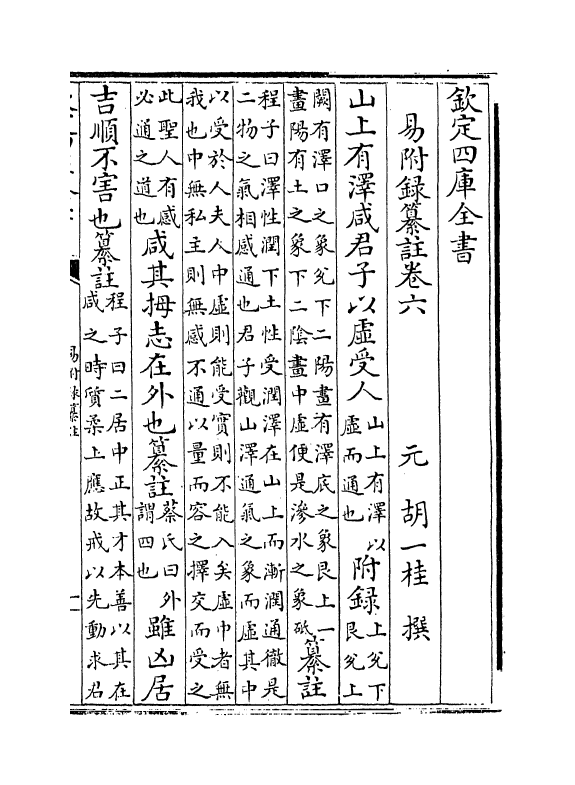 欽定四庫全書
易附録纂註卷六 元 胡一桂 撰
山上有澤咸君子以虛受人 山上有澤以 虛而通也 附録 上兌下 艮兌上
闕有澤口之象兌下二陽畫有澤底之象艮上一
畫陽有土之象下二陰畫中虛便是滲水之象砥 纂註
程子曰澤性潤下土性受潤澤在山上而漸潤通徹是
二物之氣相感通也君子觀山澤通氣之象而虛其中
以受於人夫人中虛則能受實則不能入矣虛中者無
我也中無私主則無感不通以量而容之擇交而受之
此聖人有感 必通之道也 咸其拇志在外也纂註 蔡氏曰外 謂四也 雖凶居
吉順不害也纂註 程子曰二居中正其才本善以其在
咸之時質柔上應故戒以先動求君
易附録纂註